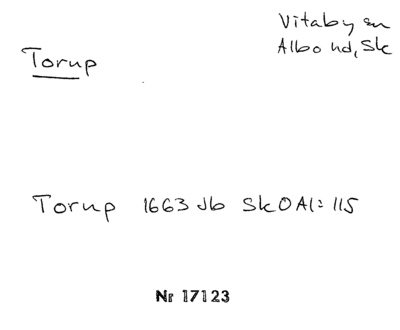 Vitaby sn
Albo hd, Sk
Torup
Torup 1663 Jb SkOAl: 115
Nr 17123